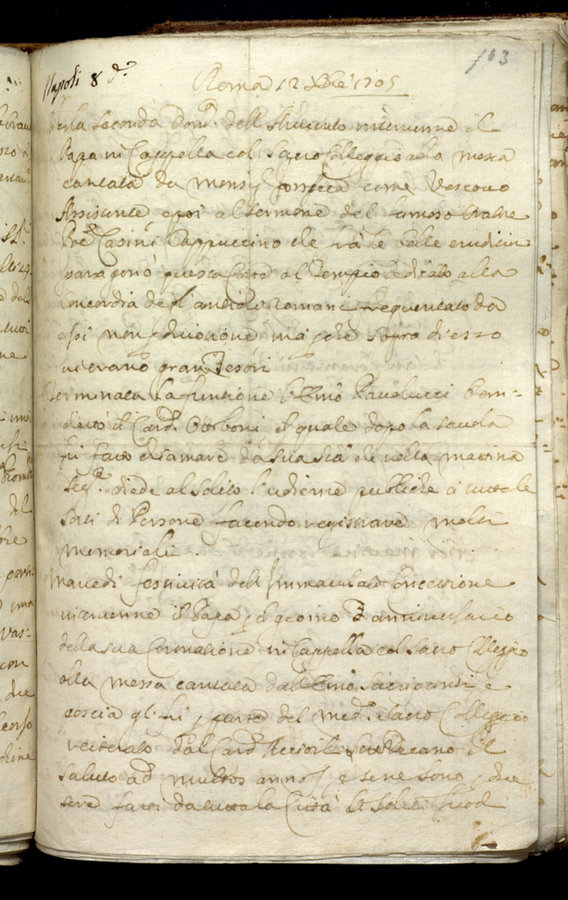 Napoli 8 d.º
103
Roma 12 Xbre 1705
Per la seconda Dom.ca dell'Avvento intervenne il
Papa in Cappella col Sacro Colleggio alla messa
cantata da Mons.r Fonseca come Vescovo
Assistente e poi al sermone del famoso Padre
Pre Casini Cappuccino che frà le belle erudizio.
paragonò questa al Tempio dedicato alla
Concordia degl'antichi Romani frequentato da
essi non p divotione mà p che sopra di esso
vi erano gran Tesori
Terminata la funzione l'Emo Paulucci ban-
chettò il Card. Borboni il quale dopo la tavola
fù fatto chiamare da Sua Stà che nella mattina
Seg.te diede al solito l'udienze publiche à tutte le
Sorti di Persone facendo registrare molti
memoriali
Martedi festività dell'Immacolata Concettione
intervenne il Papa p il giorno d'anniversario
della sua Coronatione in Cappella col Sacro Colleggio
alla messa cantata dall'Emo Sacripanti e
poscia gli fù p parte del med.º Sacro Colleggio
reiterato dal Card. Acciaioli Sotto Decano il
Saluto ad multos annos e se ne sono p due
sere fatti da tutta la Città li soliti fuochi